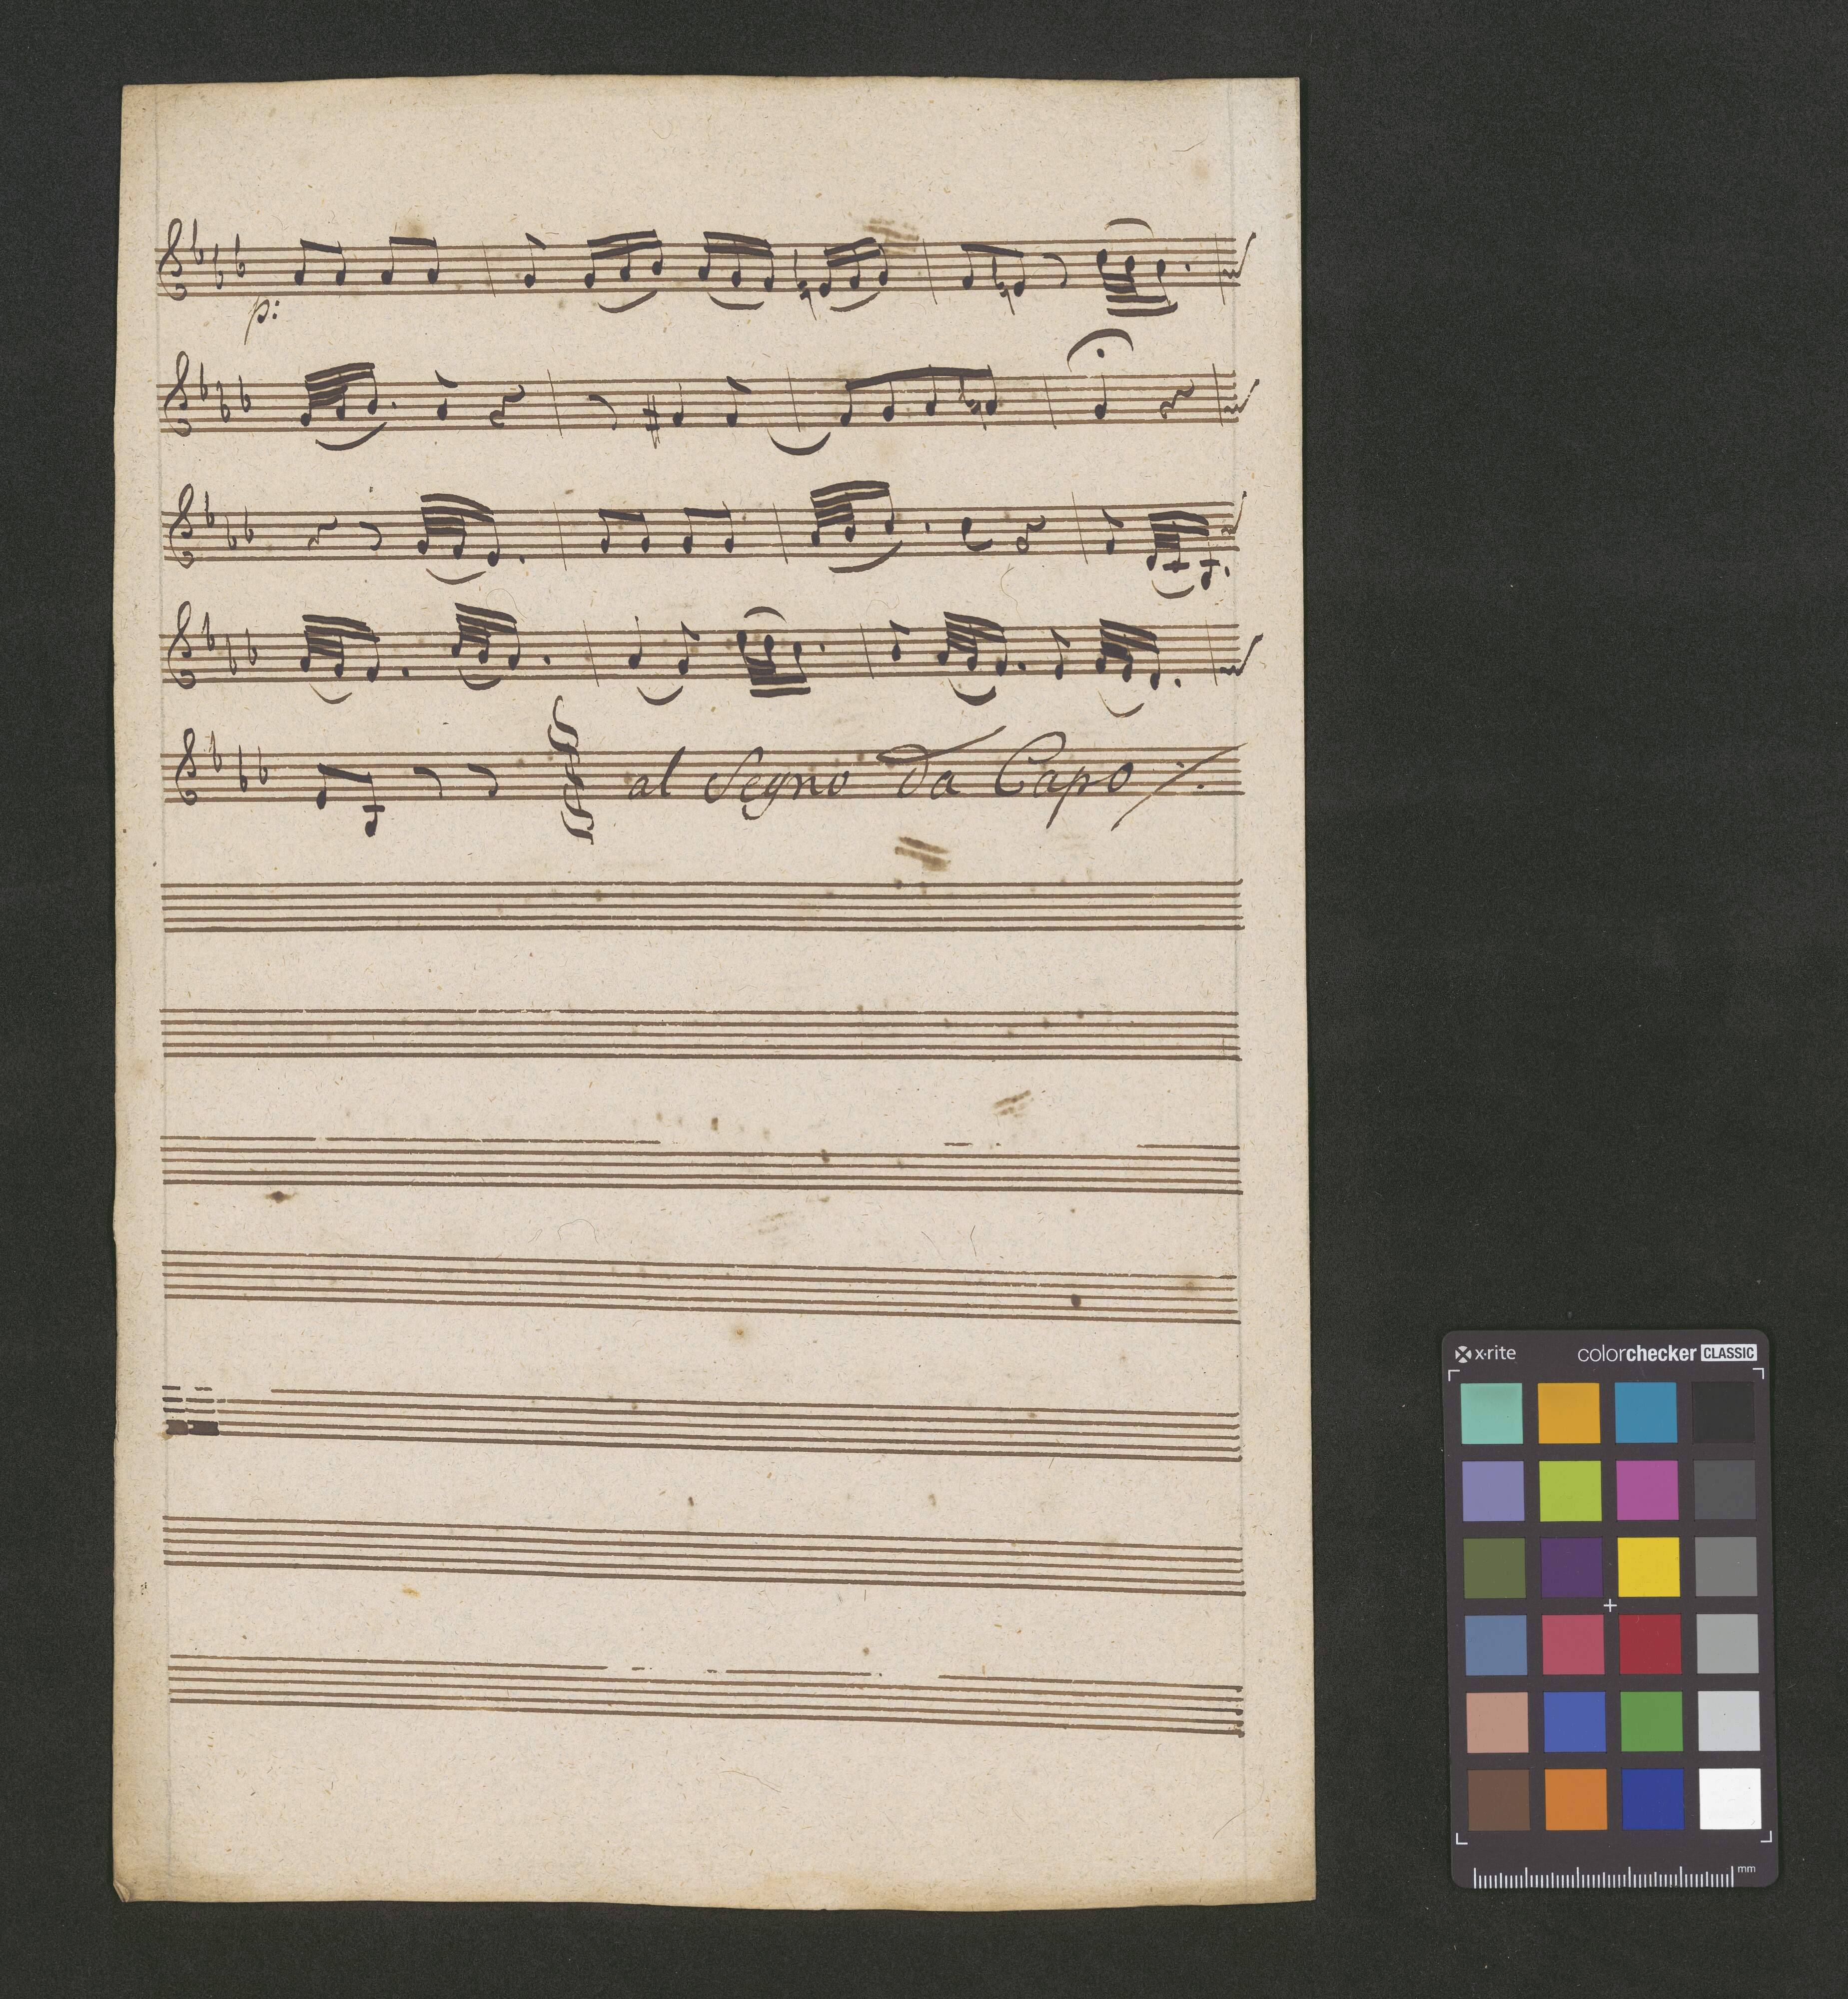 p:
al Segno Da Capo
x·rite colorchecker CLASSIC
mm